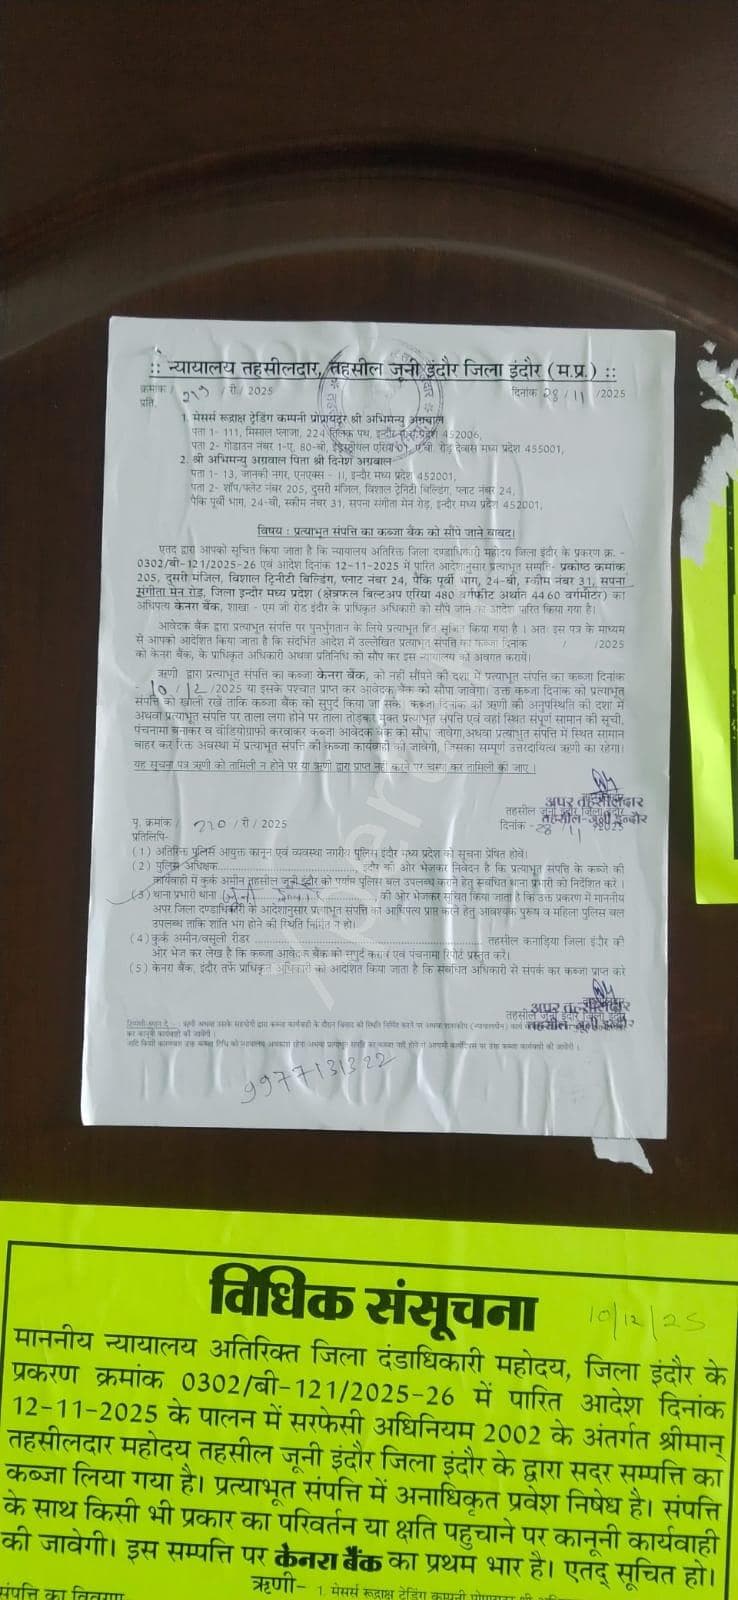 :: न्यायालय तहसीलदार, तहसील जूनी इंदौर जिला इंदौर (म.प्र.) ::
क्रमांक / 219 /री/ 2025 दिनांक 28 / 11 /2025
प्रति,
1. मेसर्स रूद्राक्ष ट्रेडिंग कम्पनी प्रोप्रायटर श्री अभिमन्यु अग्रवाल
पता 1- 111, मिसाल प्लाजा, 224 तिलक पथ, इन्दौर मध्य प्रदेश 452006,
पता 2- गोडाउन नंबर 1-ए, 80-बी, इंडस्ट्रीयल एरिया 01, ए.बी. रोड़ देवास मध्य प्रदेश 455001,
2. श्री अभिमन्यु अग्रवाल पिता श्री दिनेश अग्रवाल
पता 1- 13, जानकी नगर, एनएक्स - II, इन्दौर मध्य प्रदेश 452001,
पता 2- शॉप/फ्लेट नंबर 205, दुसरी मंजिल, विशाल ट्रेनिटी बिल्डिंग, प्लाट नंबर 24,
पैकि पूर्वी भाग, 24-बी, स्कीम नंबर 31, सपना संगीता मेन रोड़, इन्दौर मध्य प्रदेश 452001,
विषय : प्रत्याभूत संपत्ति का कब्जा बैंक को सौंपे जाने बाबद।
एतद द्वारा आपको सूचित किया जाता है कि न्यायालय अतिरिक्त जिला दण्डाधिकारी महोदय जिला इंदौर के प्रकरण क्र. -
0302/बी-121/2025-26 एवं आदेश दिनांक 12-11-2025 में पारित आदेशानुसार प्रत्याभूत सम्पत्ति- प्रकोष्ठ क्रमांक
205, दुसरी मंजिल, विशाल ट्रिनीटी बिल्डिंग, प्लाट नंबर 24, पैकि पूर्वी भाग, 24-बी, स्कीम नंबर 31, सपना
संगीता मेन रोड़, जिला इन्दौर मध्य प्रदेश (क्षेत्रफल बिल्टअप एरिया 480 वर्गफीट अर्थात 44.60 वर्गमीटर) का
अधिपत्य केनरा बैंक, शाखा - एम जी रोड इंदौर के प्राधिकृत अधिकारी को सौपे जाने का आदेश पारित किया गया है।
आवेदक बैंक द्वारा प्रत्याभूत संपत्ति पर पुनर्भुगतान के लिये प्रत्याभूत हित सृजित किया गया है । अतः इस पत्र के माध्यम
से आपको आदेशित किया जाता है कि संदर्भित आदेश में उल्लेखित प्रत्याभूत संपत्ति का कब्जा दिनांक / /2025
को केनरा बैंक, के प्राधिकृत अधिकारी अथवा प्रतिनिधि को सौंप कर इस न्यायालय को अवगत करायें।
ऋणी द्वारा प्रत्याभूत संपत्ति का कब्जा केनरा बैंक, को नही सौंपने की दशा में प्रत्याभूत संपत्ति का कब्जा दिनांक
- 10 / 12 /2025 या इसके पश्चात प्राप्त कर आवेदक बैंक को सौपा जावेगा। उक्त कब्जा दिनांक को प्रत्याभूत
संपत्ति को खाली रखें ताकि कब्जा बैंक को सुपुर्द किया जा सके कब्जा दिनांक को ऋणी की अनुपस्थिति की दशा में
अथवा प्रत्याभूत संपत्ति पर ताला लगा होने पर ताला तोड़कर मुक्त प्रत्याभूत संपत्ति एवं वहां स्थित संपूर्ण सामान की सूची,
पंचनामा बनाकर व वीडियोग्राफी करवाकर कब्जा आवेदक बैंक को सौपा जावेगा,अथवा प्रत्याभूत संपत्ति में स्थित सामान
बाहर कर रिक्त अवस्था में प्रत्याभूत संपत्ति की कब्जा कार्यवाही की जावेगी, जिसका सम्पूर्ण उत्तरदायित्व ऋणी का रहेगा।
यह सूचना पत्र ऋणी को तामिली न होने पर या ऋणी द्वारा प्राप्त नही करने पर चस्पा कर तामिली की जाए ।
अपर तहसीलदार
तहसील जूनी इंदौर जिला इंदौर
तहसील-जूनी इन्दौर
पृ. क्रमांक / 220 /री/ 2025 दिनांक - 28 / 11 /2025
प्रतिलिपि-
(1) अतिरिक्त पुलिस आयुक्त कानून एवं व्यवस्था नगरीय पुलिस इंदौर मध्य प्रदेश को सूचना प्रेषित होवे।
(2) पुलिस अधिक्षक.......... इंदौर की ओर भेजकर निवेदन है कि प्रत्याभूत संपत्ति के कब्जे की
कार्यवाही में कुर्क अमीन तहसील जूनी इंदौर को पर्याप्त पुलिस बल उपलब्ध कराने हेतु संबंधित थाना प्रभारी को निर्देशित करें ।
(3) थाना प्रभारी थाना जूनी इन्दौर की ओर भेजकर सूचित किया जाता है कि उक्त प्रकरण में माननीय
अपर जिला दण्डाधिकारी के आदेशानुसार प्रत्याभूत संपत्ति का आधिपत्य प्राप्त करने हेतु आवश्यक पुरुष व महिला पुलिस बल
उपलब्ध ताकि शांति भंग होने की स्थिति निर्मित न हो।
(4) कुर्क अमीन/वसूली रीडर .......... तहसील कनाड़िया जिला इंदौर की
ओर भेज कर लेख है कि कब्जा आवेदक बैंक को सुपुर्द करावें एवं पंचनामा रिपोर्ट प्रस्तुत करें।
(5) केनरा बैंक, इंदौर तर्फे प्राधिकृत अधिकारी को आदेशित किया जाता है कि संबंधित अधिकारी से संपर्क कर कब्जा प्राप्त करे
अपर तहसीलदार
तहसील जूनी इंदौर जिला इंदौर
तहसील-जूनी इन्दौर
9977131322
विधिक संसूचना
10/12/25
माननीय न्यायालय अतिरिक्त जिला दंडाधिकारी महोदय, जिला इंदौर के
प्रकरण क्रमांक 0302/बी-121/2025-26 में पारित आदेश दिनांक
12-11-2025 के पालन में सरफेसी अधिनियम 2002 के अंतर्गत श्रीमान्
तहसीलदार महोदय तहसील जूनी इंदौर जिला इंदौर के द्वारा सदर सम्पत्ति का
कब्जा लिया गया है। प्रत्याभूत संपत्ति में अनाधिकृत प्रवेश निषेध है। संपत्ति
के साथ किसी भी प्रकार का परिवर्तन या क्षति पहुचाने पर कानूनी कार्यवाही
की जावेगी। इस सम्पत्ति पर केनरा बैंक का प्रथम भार है। एतद् सूचित हो।
ऋणी- 1. मेसर्स रूद्राक्ष ट्रेडिंग कम्पनी
संपत्ति का विवरण